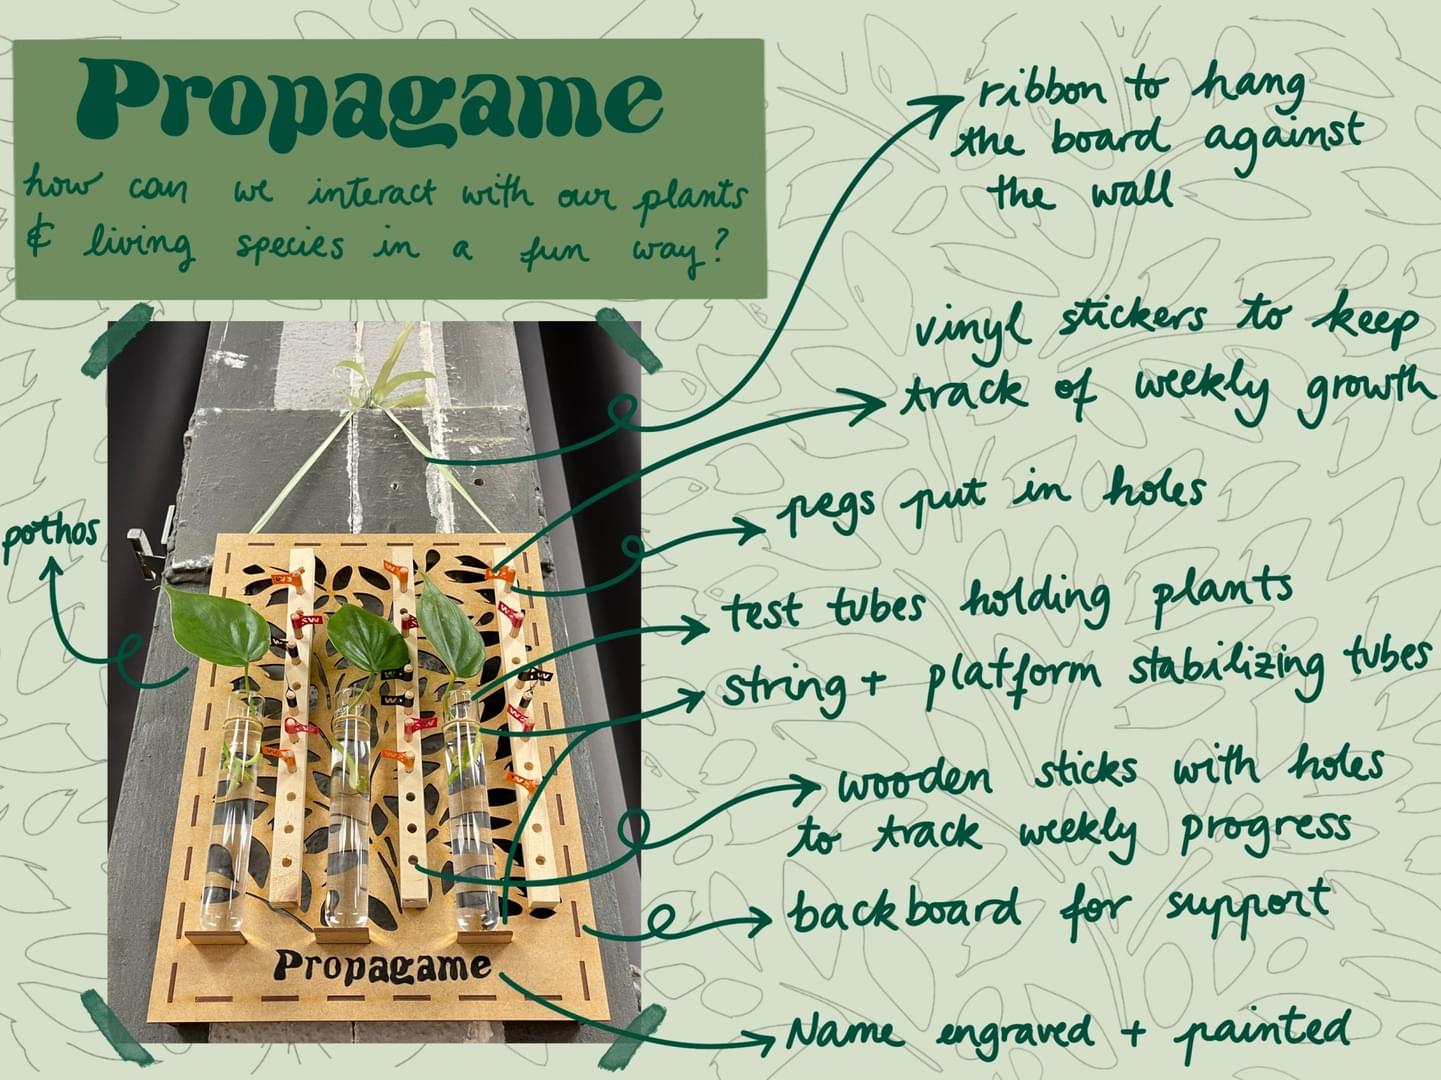 Propagame
how can we interact with our plants
& living species in a fun way?
ribbon to hang
the board against
the wall
vinyl stickers to keep
track of weekly growth
pegs put in holes
pothos
test tubes holding plants
string + platform stabilizing tubes
wooden sticks with holes
to track weekly progress
backboard for support
Propagame
Name engraved + painted